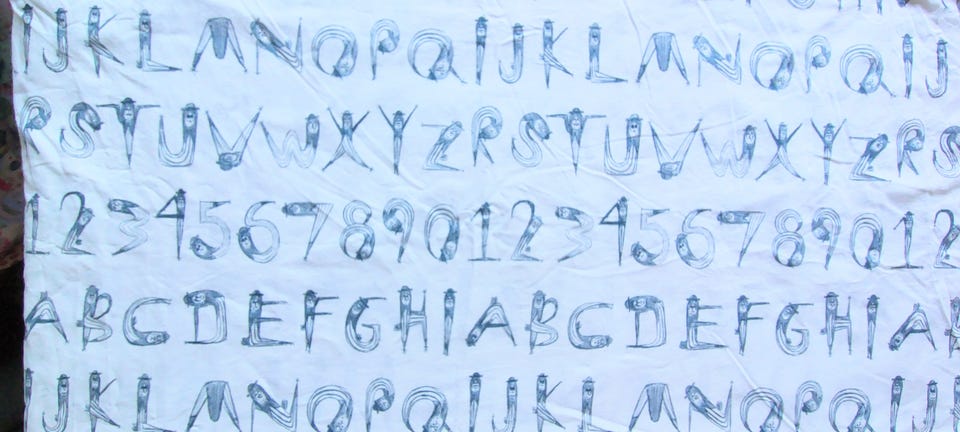 I J K L M N O P Q I J K L M N O P Q I J
R S T U V W X Y Z R S T U V W X Y Z R S
1 2 3 4 5 6 7 8 9 0 1 2 3 4 5 6 7 8 9 0 1 2
A B C D E F G H I A B C D E F G H I A
I J K L M N O P Q I J K L M N O P Q I J